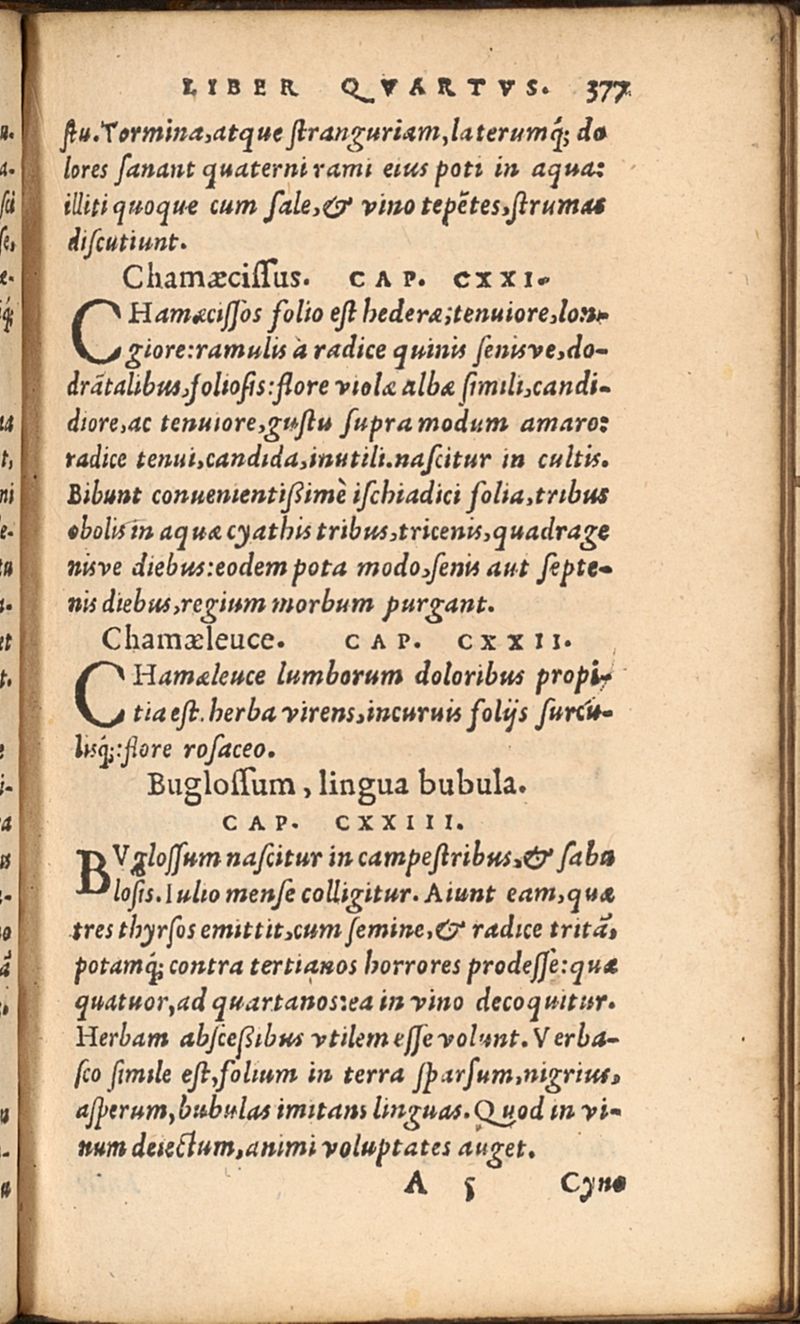 LIBER QVARTVS. 377
ſtu. Tormina, atque ſtranguriam, laterumq́; do
lores ſanant quaterni rami eius poti in aqua:
illiti quoque cum ſale, & vino tepẽtes, ſtrumas
diſcutiunt.
Chamæciſſus. CAP. CXXI.
CHamæciſſos folio eſt hederæ; tenuiore, lon-
giore: ramulis à radice quinis ſenisve, do-
drãtalibus, folioſis: flore violæ albæ ſimili, candi-
diore, ac tenuiore, guſtu ſupra modum amaro:
radice tenui, candida, inutili. naſcitur in cultis.
Bibunt conuenientißimè iſchiadici folia, tribus
obolis in aquæ cyathis tribus, tricenis, quadrage
nisve diebus: eodem pota modo, ſenis aut ſepte-
nis diebus, regium morbum purgant.
Chamæleuce. CAP. CXXII.
CHamæleuce lumborum doloribus propi-
tia eſt. herba virens, incuruis folijs ſurcu-
lisq́;: flore roſaceo.
Bugloſſum, lingua bubula.
CAP. CXXIII.
BVgloſſum naſcitur in campeſtribus, & ſabu
loſis. Iulio menſe colligitur. Aiunt eam, quæ
tres thyrſos emittit, cum ſemine, & radice tritã,
potamq́; contra tertianos horrores prodeſſe: quæ
quatuor, ad quartanos: ea in vino decoquitur.
Herbam abſceßibus vtilem eſſe volunt. Verba-
ſco ſimile eſt, folium in terra ſparſum, nigrius,
aſperum, bubulas imitans linguas. Quod in vi-
num deiectum, animi voluptates auget.
A 5 Cyno